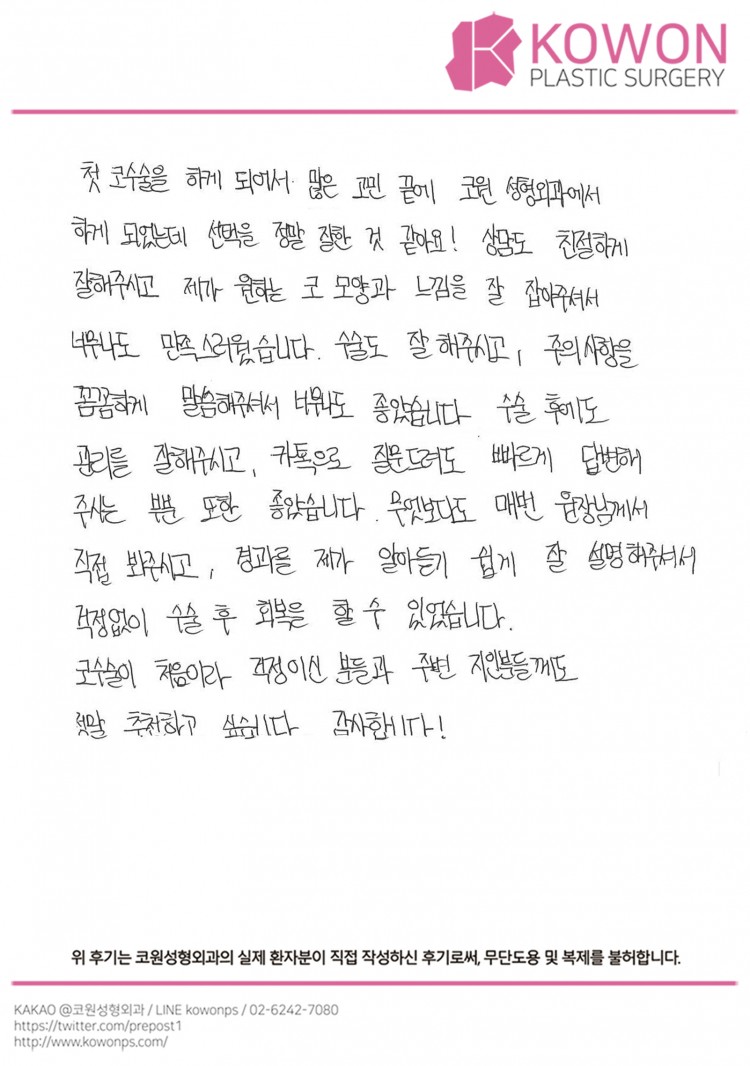 KOWON
PLASTIC SURGERY
첫 코수술을 하게 되어서 많은 고민 끝에 코원 성형외과에서
하게 되었는데 선택을 정말 잘한 것 같아요! 상담도 친절하게
잘해주시고 제가 원하는 코 모양과 느낌을 잘 잡아주셔서
너무나도 만족스러웠습니다. 수술도 잘 해주시고, 주의사항을
꼼꼼하게 말씀해주셔서 너무나도 좋았습니다 수술 후에도
관리를 잘해주시고, 카톡으로 질문드려도 빠르게 답변해
주시는 부분 또한 좋았습니다. 무엇보다도 매번 원장님께서
직접 봐주시고, 경과를 제가 알아듣기 쉽게 잘 설명해주셔서
걱정없이 수술 후 회복을 할 수 있었습니다.
코수술이 처음이라 걱정이신 분들과 주변 지인분들께도
정말 추천하고 싶습니다 감사합니다!
위 후기는 코원성형외과의 실제 환자분이 직접 작성하신 후기로써, 무단도용 및 복제를 불허합니다.
KAKAO @코원성형외과 / LINE kowonps / 02-6242-7080
https://twitter.com/prepost1
http://www.kowonps.com/